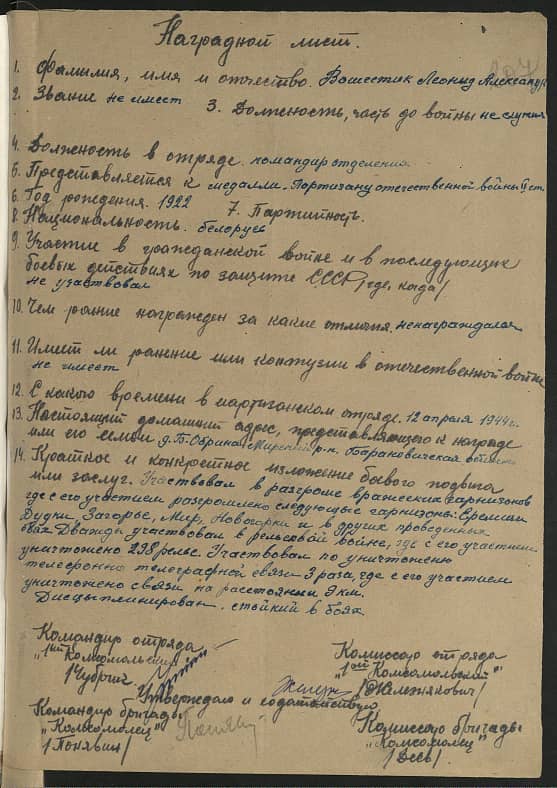 Наградной лист.
207
1. Фамилия, имя и отчество. Вашестик Леонид Александр
2. Звание не имеет 3. Должность, часть до войны не служил
4. Должность в отряде. командир отделения
5. Представляется к медалли. Портизану отечественной войны II ст.
6. Год рождения. 1922 7. Партийность.
8. Национальность. белорус
9. Участие в гражданской войне и в последующих
боевых действиях по защите СССР /где, когда/
не участвовал
10. Чем ранние награжден за какие отличия. ненаграждался
11. Имеет ли ранение или контузии в отечественной войне
не имеет
12. С какого времени в партизанском отряде. 12 апреля 1944 г.
13. Настоящий домашний адрес, представляющего к награде
или его семьи д. Б-Обрина Мирский р-н. Барановичская область
14. Краткое и конкретное изложение боевого подвига
или заслуг. Участвовал в разгроме вражеских гарнизонов
где с его участием разгромлено следующие гарнизоны: Еремичи
Дудки, Загорье, Мир, Новогорки и в других проведенных
боях Дважды участвовал в рельсовой войне, где с его участием
уничтожено 238 рельс. Участвовал по уничтоженю
телефонно телеграфной связи 3 раза, где с его участием
уничтожено связи на расстоянии 9 км.
Дисцыплинирован. стойкий в боях
Командир отряда Комиссар отряда
"1ый Комсомольский" "1ый Комсомольский"
/Чубрик/ /Железнякович/
Утверждаю и ходатайствую
Командир бригады Комиссар бригады
"Комсомолец" "Комсомолец"
/Понявин/ /Десь/